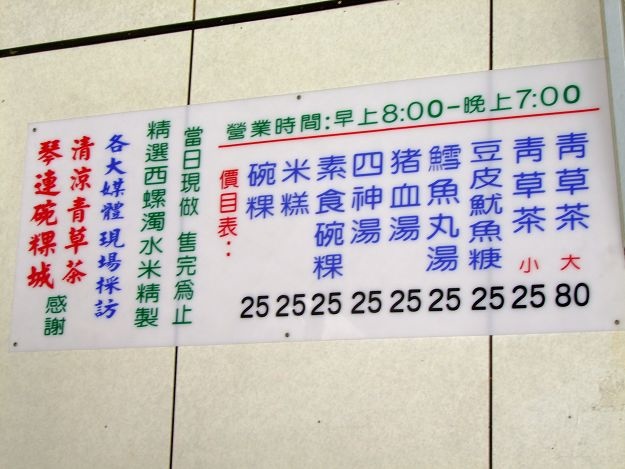 營業時間:早上8:00-晚上7:00
價目表:
碗粿 25
米糕 25
素食碗粿 25
四神湯 25
猪血湯 25
鱈魚丸湯 25
豆皮魷魚焿 25
青草茶 小 25
青草茶 大 80
當日現做 售完為止
精選西螺濁水米精製
各大媒體現場採訪
清涼青草茶
琴連碗粿城
感謝